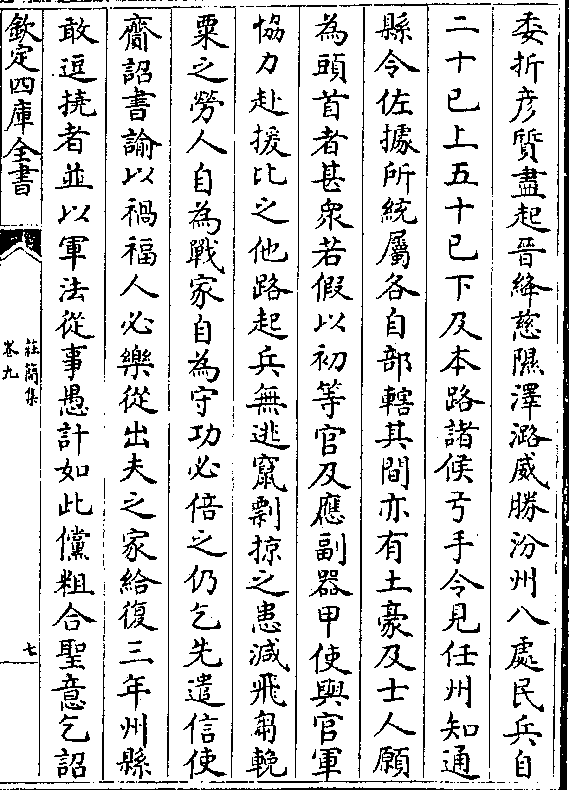 委折彦質盡起晉絳慈隰澤潞威勝汾州八處民兵自
二十已上五十已下及本路諸候弓手令見任州知通
縣令佐據所統屬各自部轄其間亦有土豪及士人願
為頭首者甚衆若假以初等官及應副器甲使與官軍
協力赴援比之他路起兵無逃竄剽掠之患減飛芻輓
粟之勞人自為戰家自為守功必倍之仍乞先遣信使
齎詔書諭以禍福人必樂從出夫之家給復三年州縣
敢逗撓者並以軍法從事愚計如此儻粗合聖意乞詔
欽定四庫全書
莊簡集
卷九
七